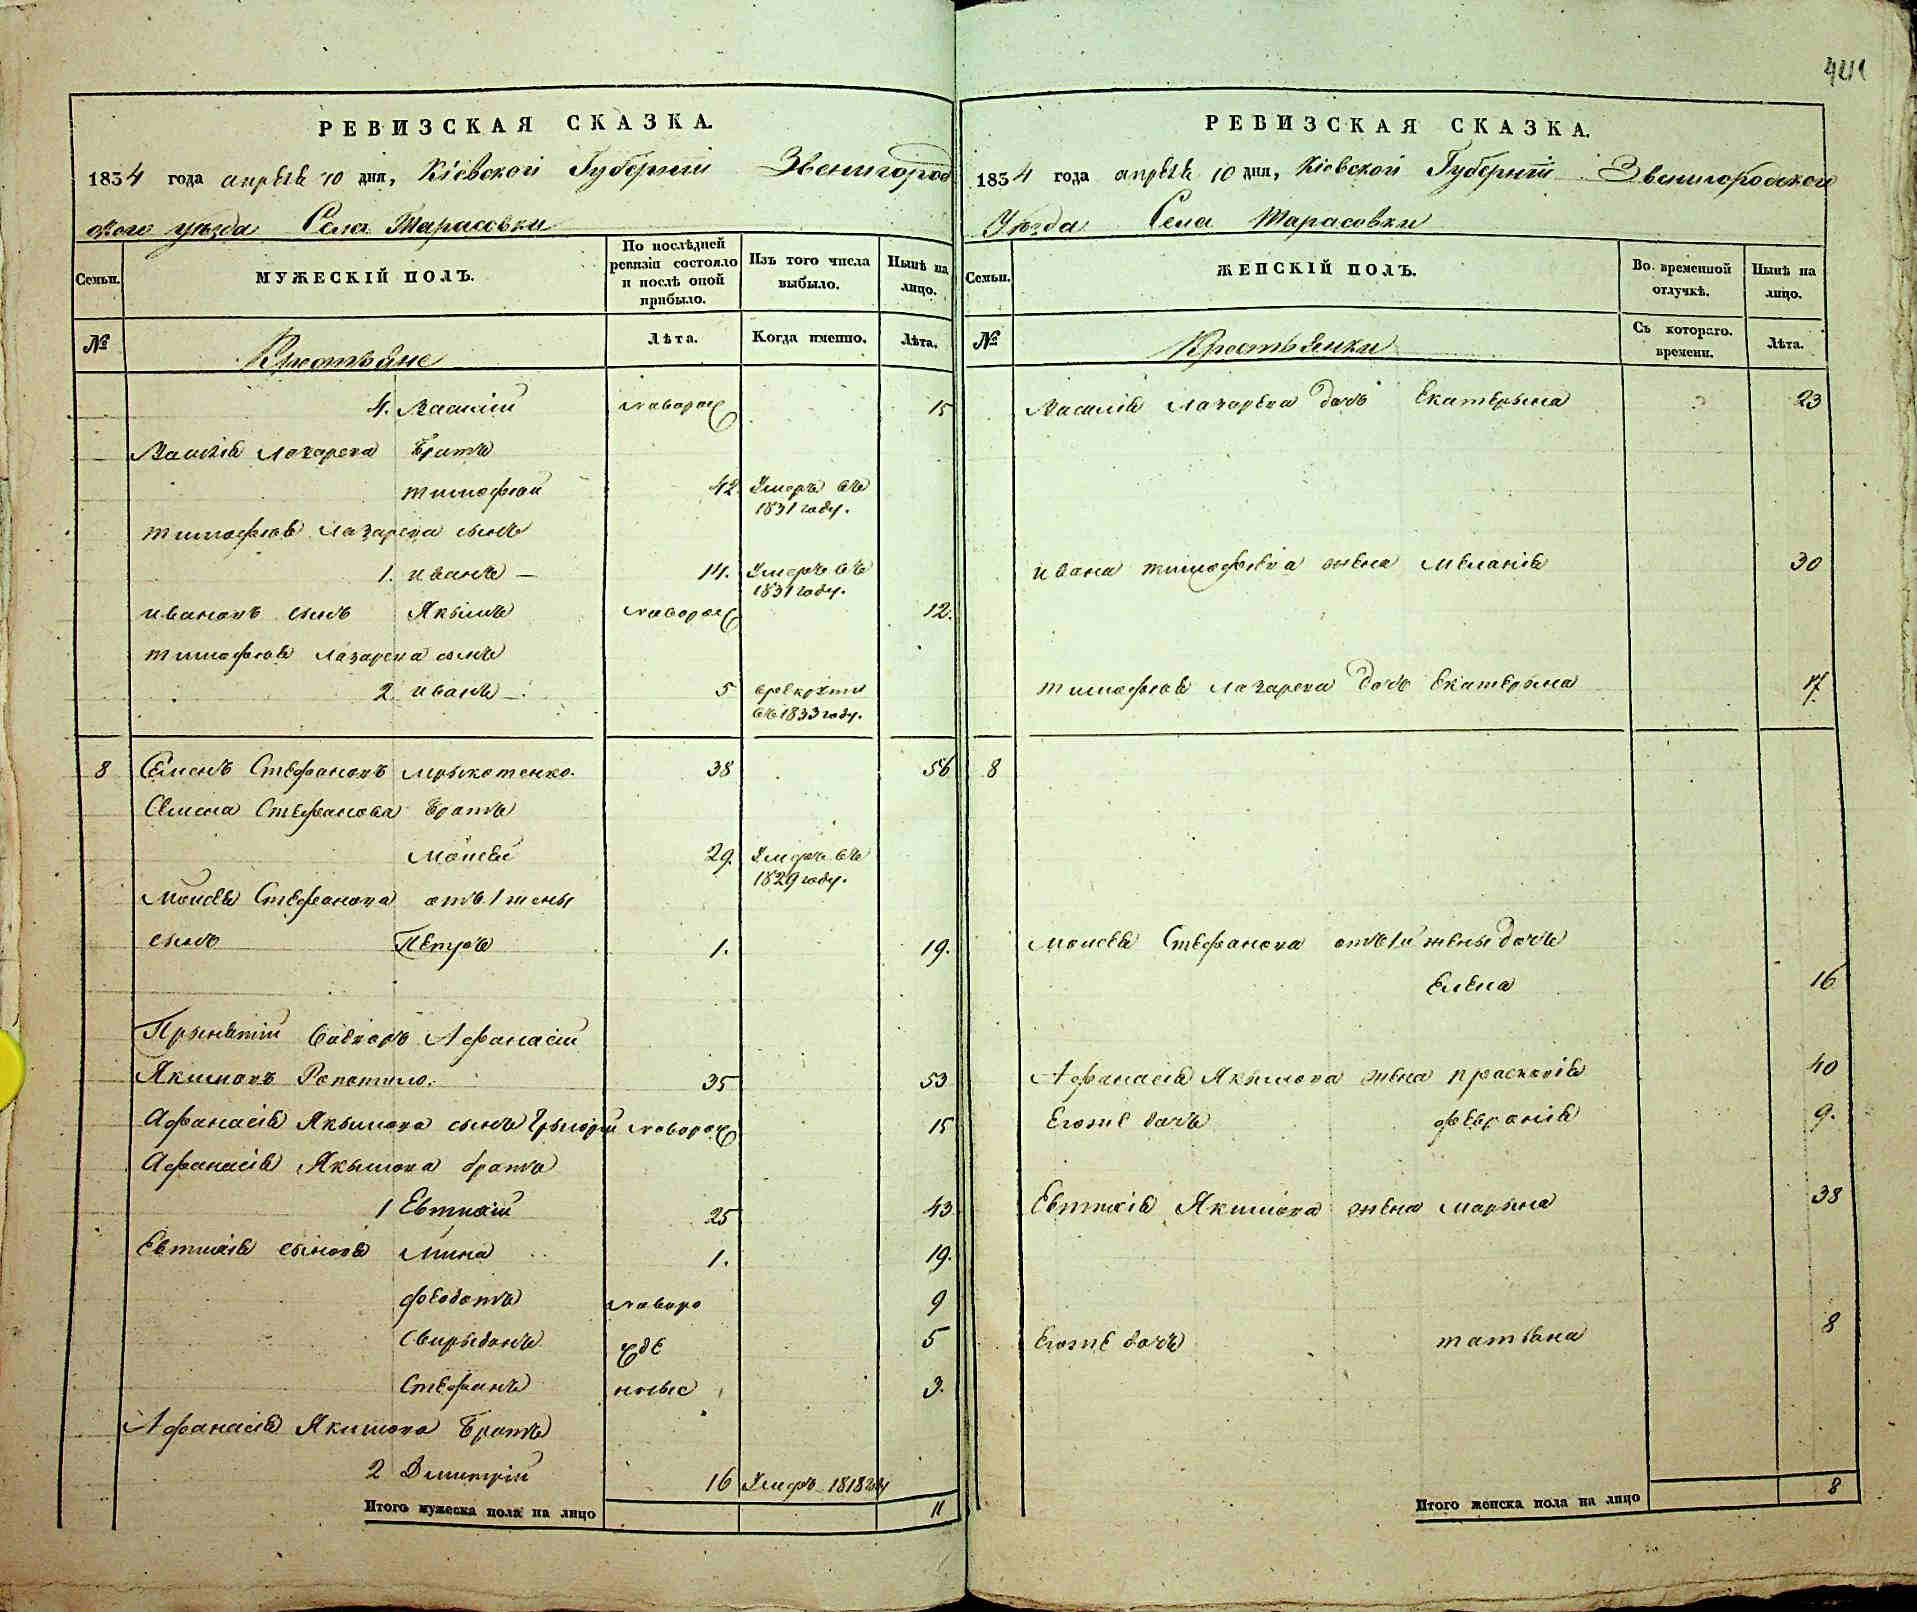 441
РЕВИЗСКАЯ СКАЗКА.
1834 года апреля 10 дня, Кіевской Губерніи Звенигород
ского уезда Села Тарасовки
Семьи.
МУЖЕСКІЙ ПОЛЪ.
По послѣдней ревизіи состояло и послѣ оной прибыло.
Изъ того числа выбыло.
Нынѣ на лицо.
№
Крестьяне
Лѣта.
Когда именно.
Лѣта.
4. Василій новорож 15
Василія Лазарева братъ
тимофей 42 Умеръ въ 1831 году.
тимофея Лазарева сынъ
1. иванъ 14. Умеръ въ 1831 году.
ивановъ сынъ Якымъ новорож 12.
тимофея Лазарева сынъ
2 иванъ 5 въ 1833 году.
8 Семенъ Стефановъ 38 56
Семена Стефанова братъ
Моисей 29. Умеръ въ 1829 году.
Моисея Стефанова отъ 1 жены
сынъ Петръ 1. 19.
Афанасій
Якимовъ 35 53
Афанасія Якымова сынъ Грыгорій новорож 15
Афанасія Якымова братъ
1 Евтихій 25 43
Евтихія сыновя Мина 1. 19.
феодотъ новоро 9
Свирыдонъ жде 5
Стефанъ ныые 3.
Афанасія Якимова братъ
2 Дмитрій 16 Умеръ 1818
Итого мужеска пола на лицо 11
РЕВИЗСКАЯ СКАЗКА.
1834 года апреля 10 дня, Кіевской Губерніи Звенигородской
Уезда Села Тарасовки
Семьи.
ЖЕНСКІЙ ПОЛЪ.
Во временной отлучкѣ.
Нынѣ на лицо.
№
Крестьянки
Съ котораго времени.
Лѣта.
Василія Лазарева дочь Екатерына 23
ивана тимофеева жена меланія 30
тимофея Лазарева дочь Екатерына 17.
8
Моисея Стефанова отъ 1й жены дочь
Елена 16
Афанасія Якымова жена прасковія 40
Егоже дочь февронія 9.
Евтихія Якимова жена марына 38
Егоже дочь татьяна 8
Итого женска пола на лицо 8